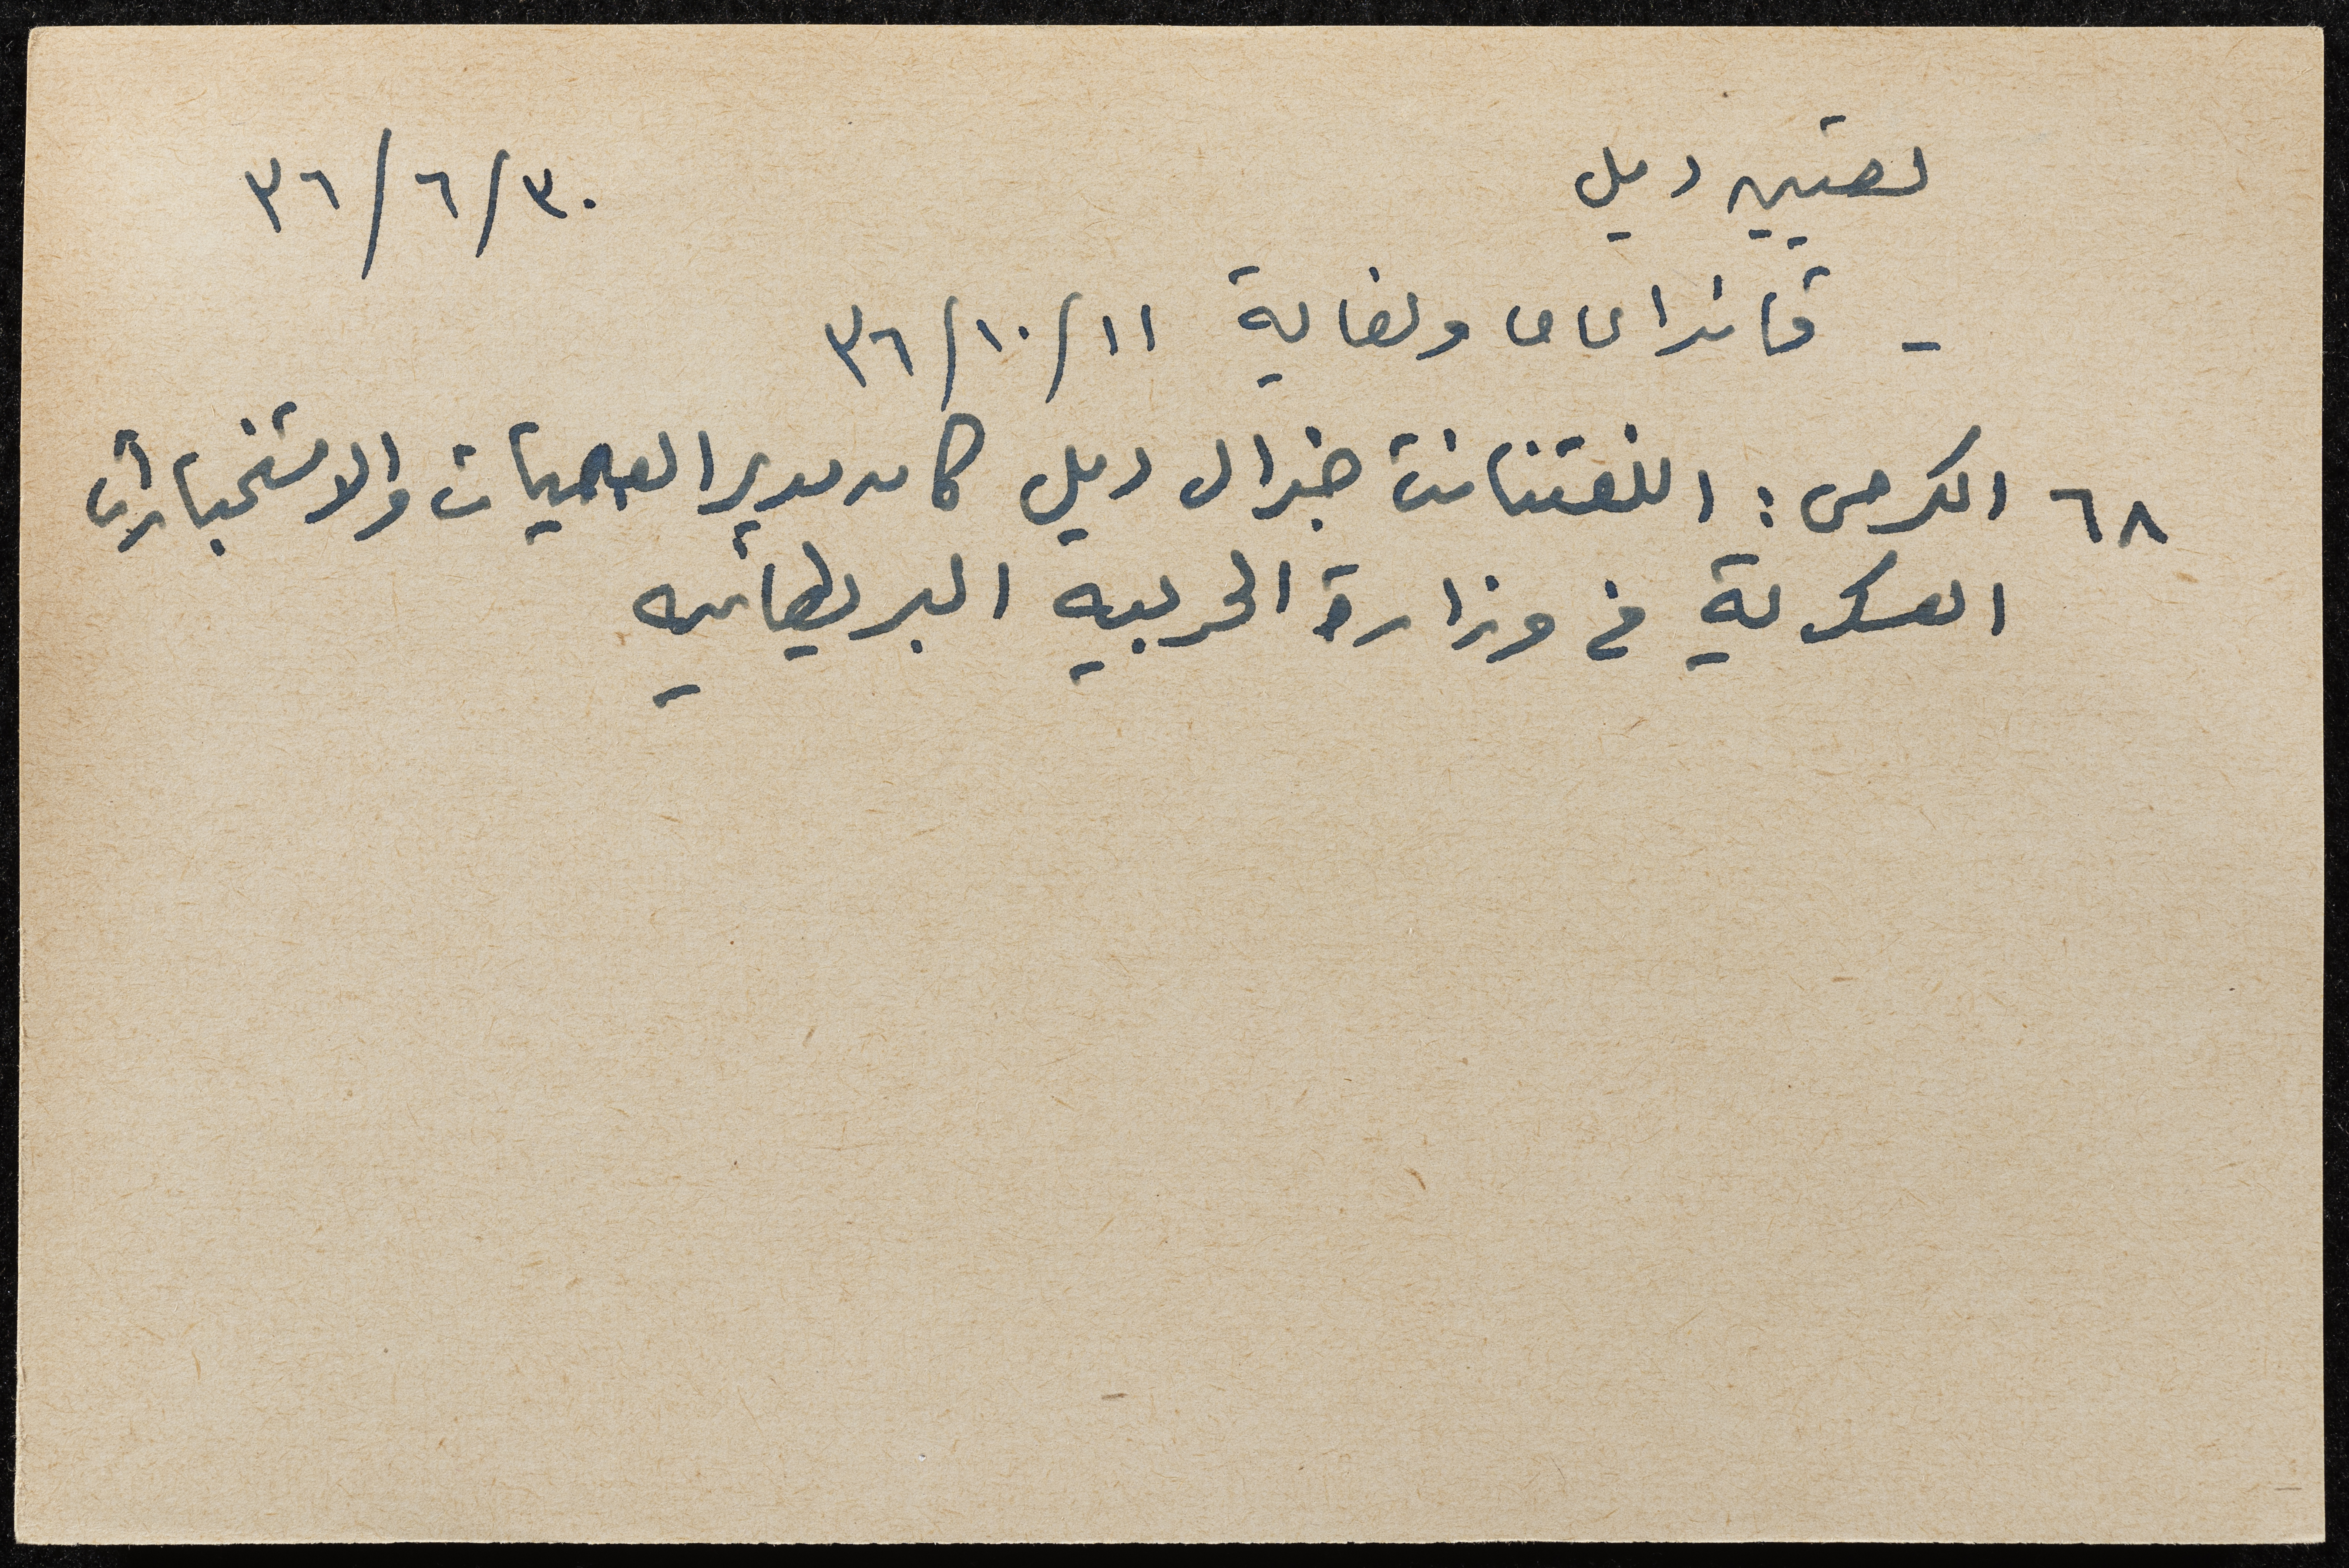 تعيين ديل ٣٠/٦/٣٦
- قائدا عاما ولغاية ١١/١٠/٣٦
٦٨ الكرمى: اللفتنانت جنرال ديل كان مدير العمليات والاستخبارات
العسكرية في وزارة الحربيه البريطانيه